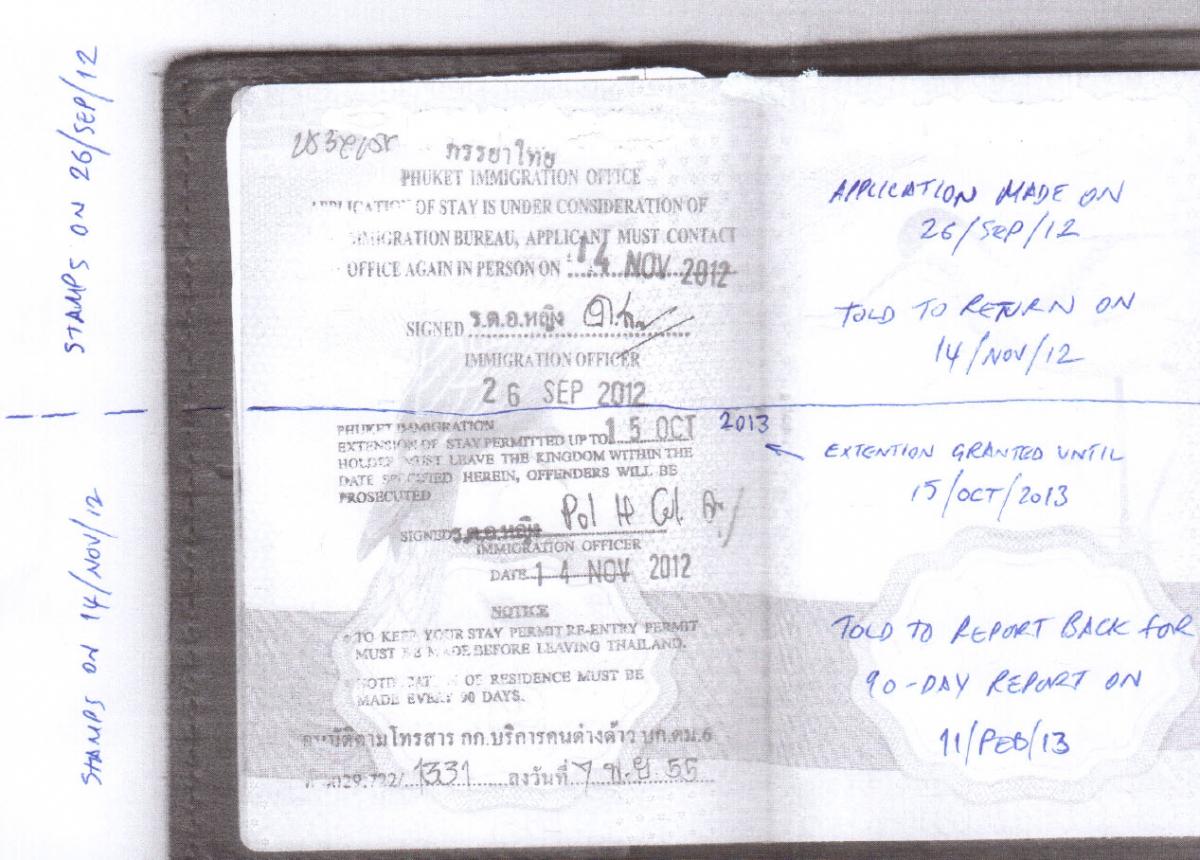 STAMPS ON 26/SEP/12
ภรรยาไทย
PHUKET IMMIGRATION OFFICE
APPLICATION OF STAY IS UNDER CONSIDERATION OF
IMMIGRATION BUREAU, APPLICANT MUST CONTACT
OFFICE AGAIN IN PERSON ON 14 NOV 2012
SIGNED ร.ต.อ.หญิง
IMMIGRATION OFFICER
26 SEP 2012
APPLICATION MADE ON
26/SEP/12
TOLD TO RETURN ON
14/NOV/12
STAMPS ON 14/NOV/12
PHUKET IMMIGRATION
EXTENSION OF STAY PERMITTED UP TO 15 OCT 2013
HOLDER MUST LEAVE THE KINGDOM WITHIN THE
DATE SPECIFIED HEREIN, OFFENDERS WILL BE
PROSECUTED
SIGNED ร.ต.อ.หญิง Pol Lt Col.
IMMIGRATION OFFICER
DATE 14 NOV 2012
NOTICE
TO KEEP YOUR STAY PERMIT RE-ENTRY PERMIT
MUST BE MADE BEFORE LEAVING THAILAND.
NOTIFICATION OF RESIDENCE MUST BE
MADE EVERY 90 DAYS.
อนุมัติตามโทรสาร กก.บริการคนต่างด้าว บก.ตม.6
0029.722/1331 ลงวันที่ 7 พ.ย. 55
EXTENTION GRANTED UNTIL
15/OCT/2013
TOLD TO REPORT BACK FOR
90-DAY REPORT ON
11/FEB/13